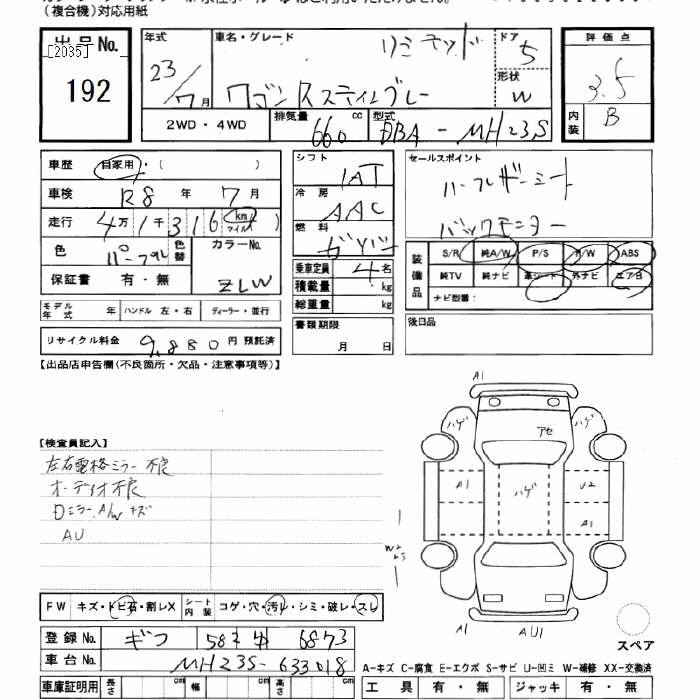 (複合機)対応用紙
出品No.
[2035]
192
年式
23/7月
車名・グレード
リミテッド
ワゴンRスティングレー
ドア
5
形状
W
評価点
3.5
内装
B
2WD・4WD
排気量
660
cc
型式
DBA-MH23S
車歴
自家用・( )
車検
R8年7月
走行
4万1千316
km
マイル
色
パープル
色替
カラーNo.
ZLW
保証書
有・無
シフト
IAT
冷房
AAC
燃料
ガソリン
乗車定員
4名
積載量
kg
総重量
kg
セールスポイント
ハーフレザーシート
バックモニター
装備品
S/R
純A/W
P/S
P/W
ABS
純TV
純ナビ
革シート
外ナビ
エアB
ナビ型番:
モデル年式
年
ハンドル
左・右
ディーラー・並行
書類期限
月
日
後日品
リサイクル料金
9,880円
預託済
【出品店申告欄(不良箇所・欠品・注意事項等)】
【検査員記入】
左右電格ミラー不良
オーディオ不良
Dミラー.A/Wキズ
AU
A1
ハゲ
ハゲ
アセ
A1
ハゲ
U2
A1
A1
AU1
スペア
FW
キズ・トビ石・割レX
シート内装
コゲ・穴・汚レ・シミ・破レ・スレ
登録No.
ギフ
6873
車台No.
MH23S-633018
車庫証明用
長さ
cm
幅
cm
高さ
cm
A-キズ C-腐食 E-エクボ S-サビ U-凹ミ W-補修 XX-交換済
工具
有・無
ジャッキ
有・無